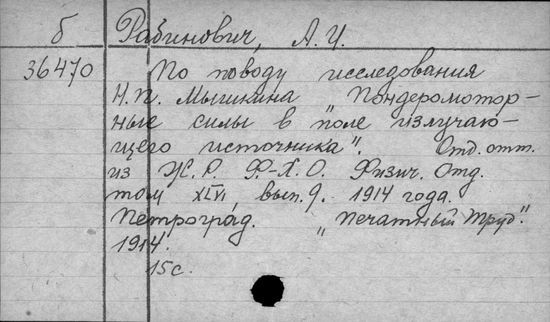 б Рабинович, А. И.
36470 По поводу исследования
Н. П. Мышкина „Пондеромотор-
ные силы в поле излучаю-
щего источника". Отд. отт.
из Ж. Р. Ф-Х. О. Физич. Отд.
том XLVI вып. 9. 1914 года.
Петроград. „Печатный Труд".
1914.
15 с.